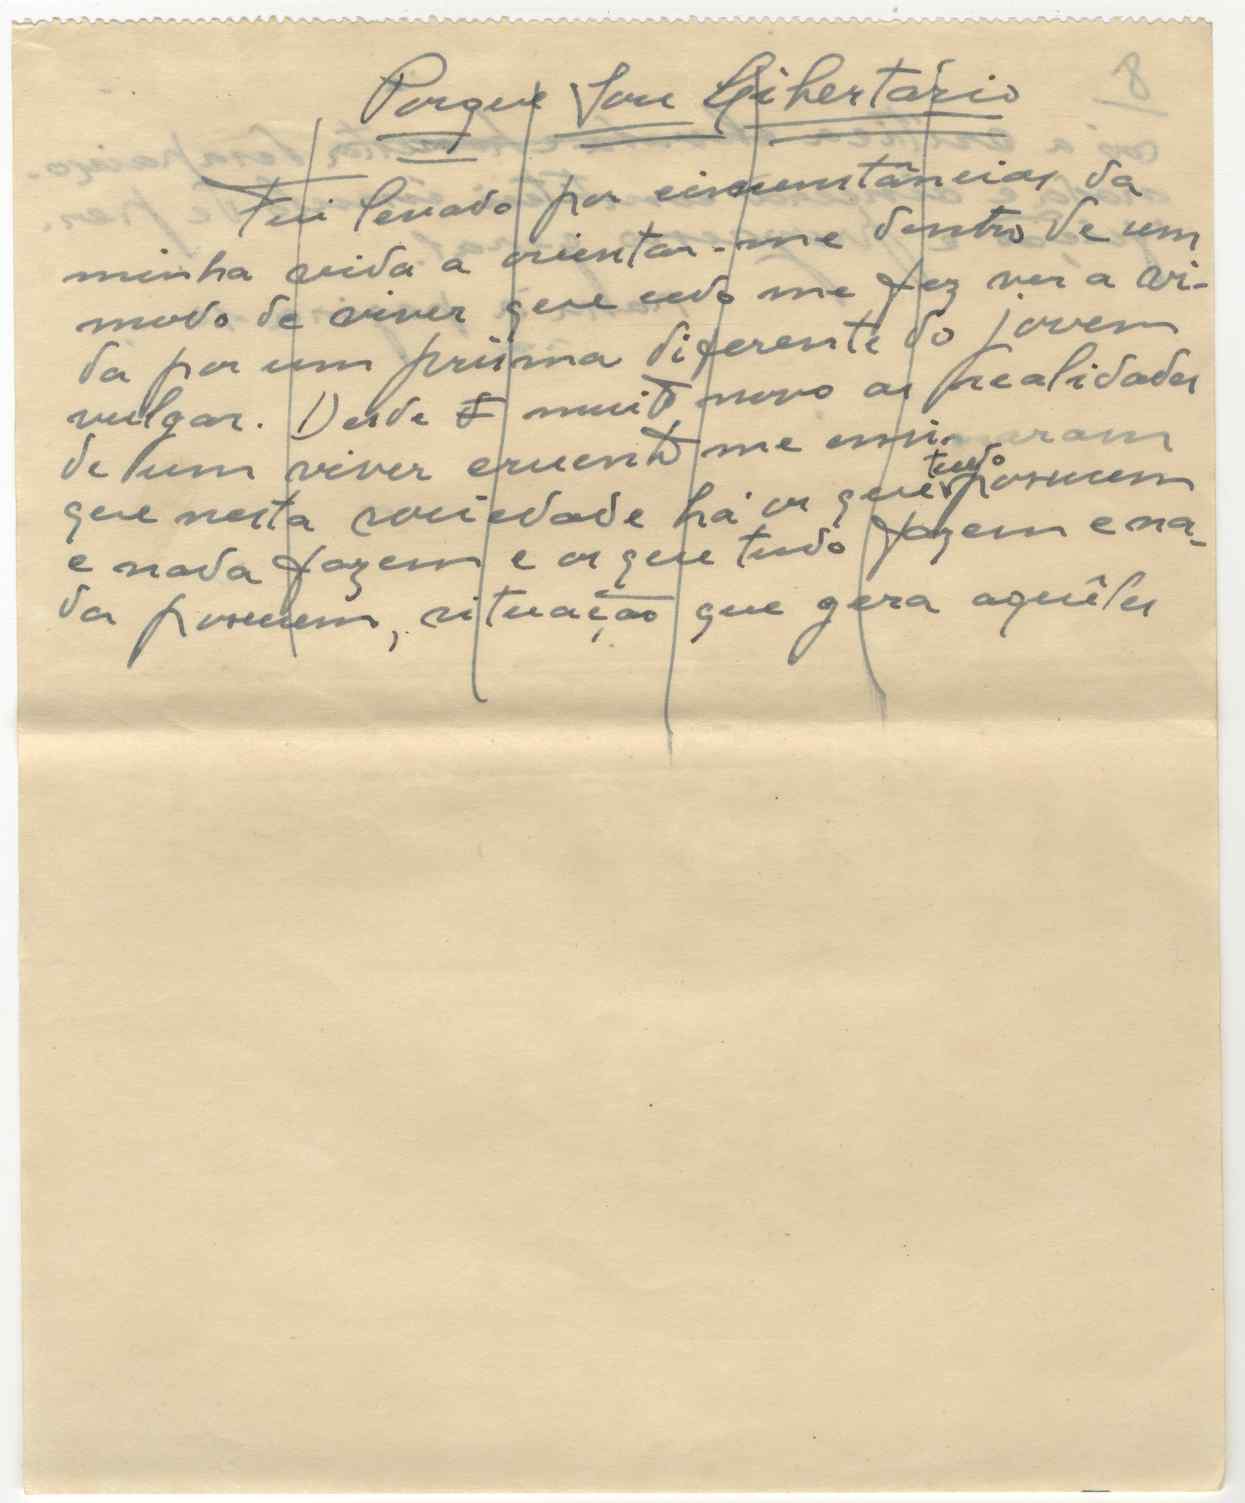 Porque Sou Libertário
Fui levado por circunstâncias da
minha vida a orientar-me dentro de um
modo de viver que cedo me fez ver a vi-
da por um prisma diferente do jovem
vulgar. Desde muito novo as realidades
de um viver cruento me ensinaram
que nesta sociedade há os que tudo possuem
e nada fazem e os que tudo fazem e na-
da possuem, situação que gera aquêles